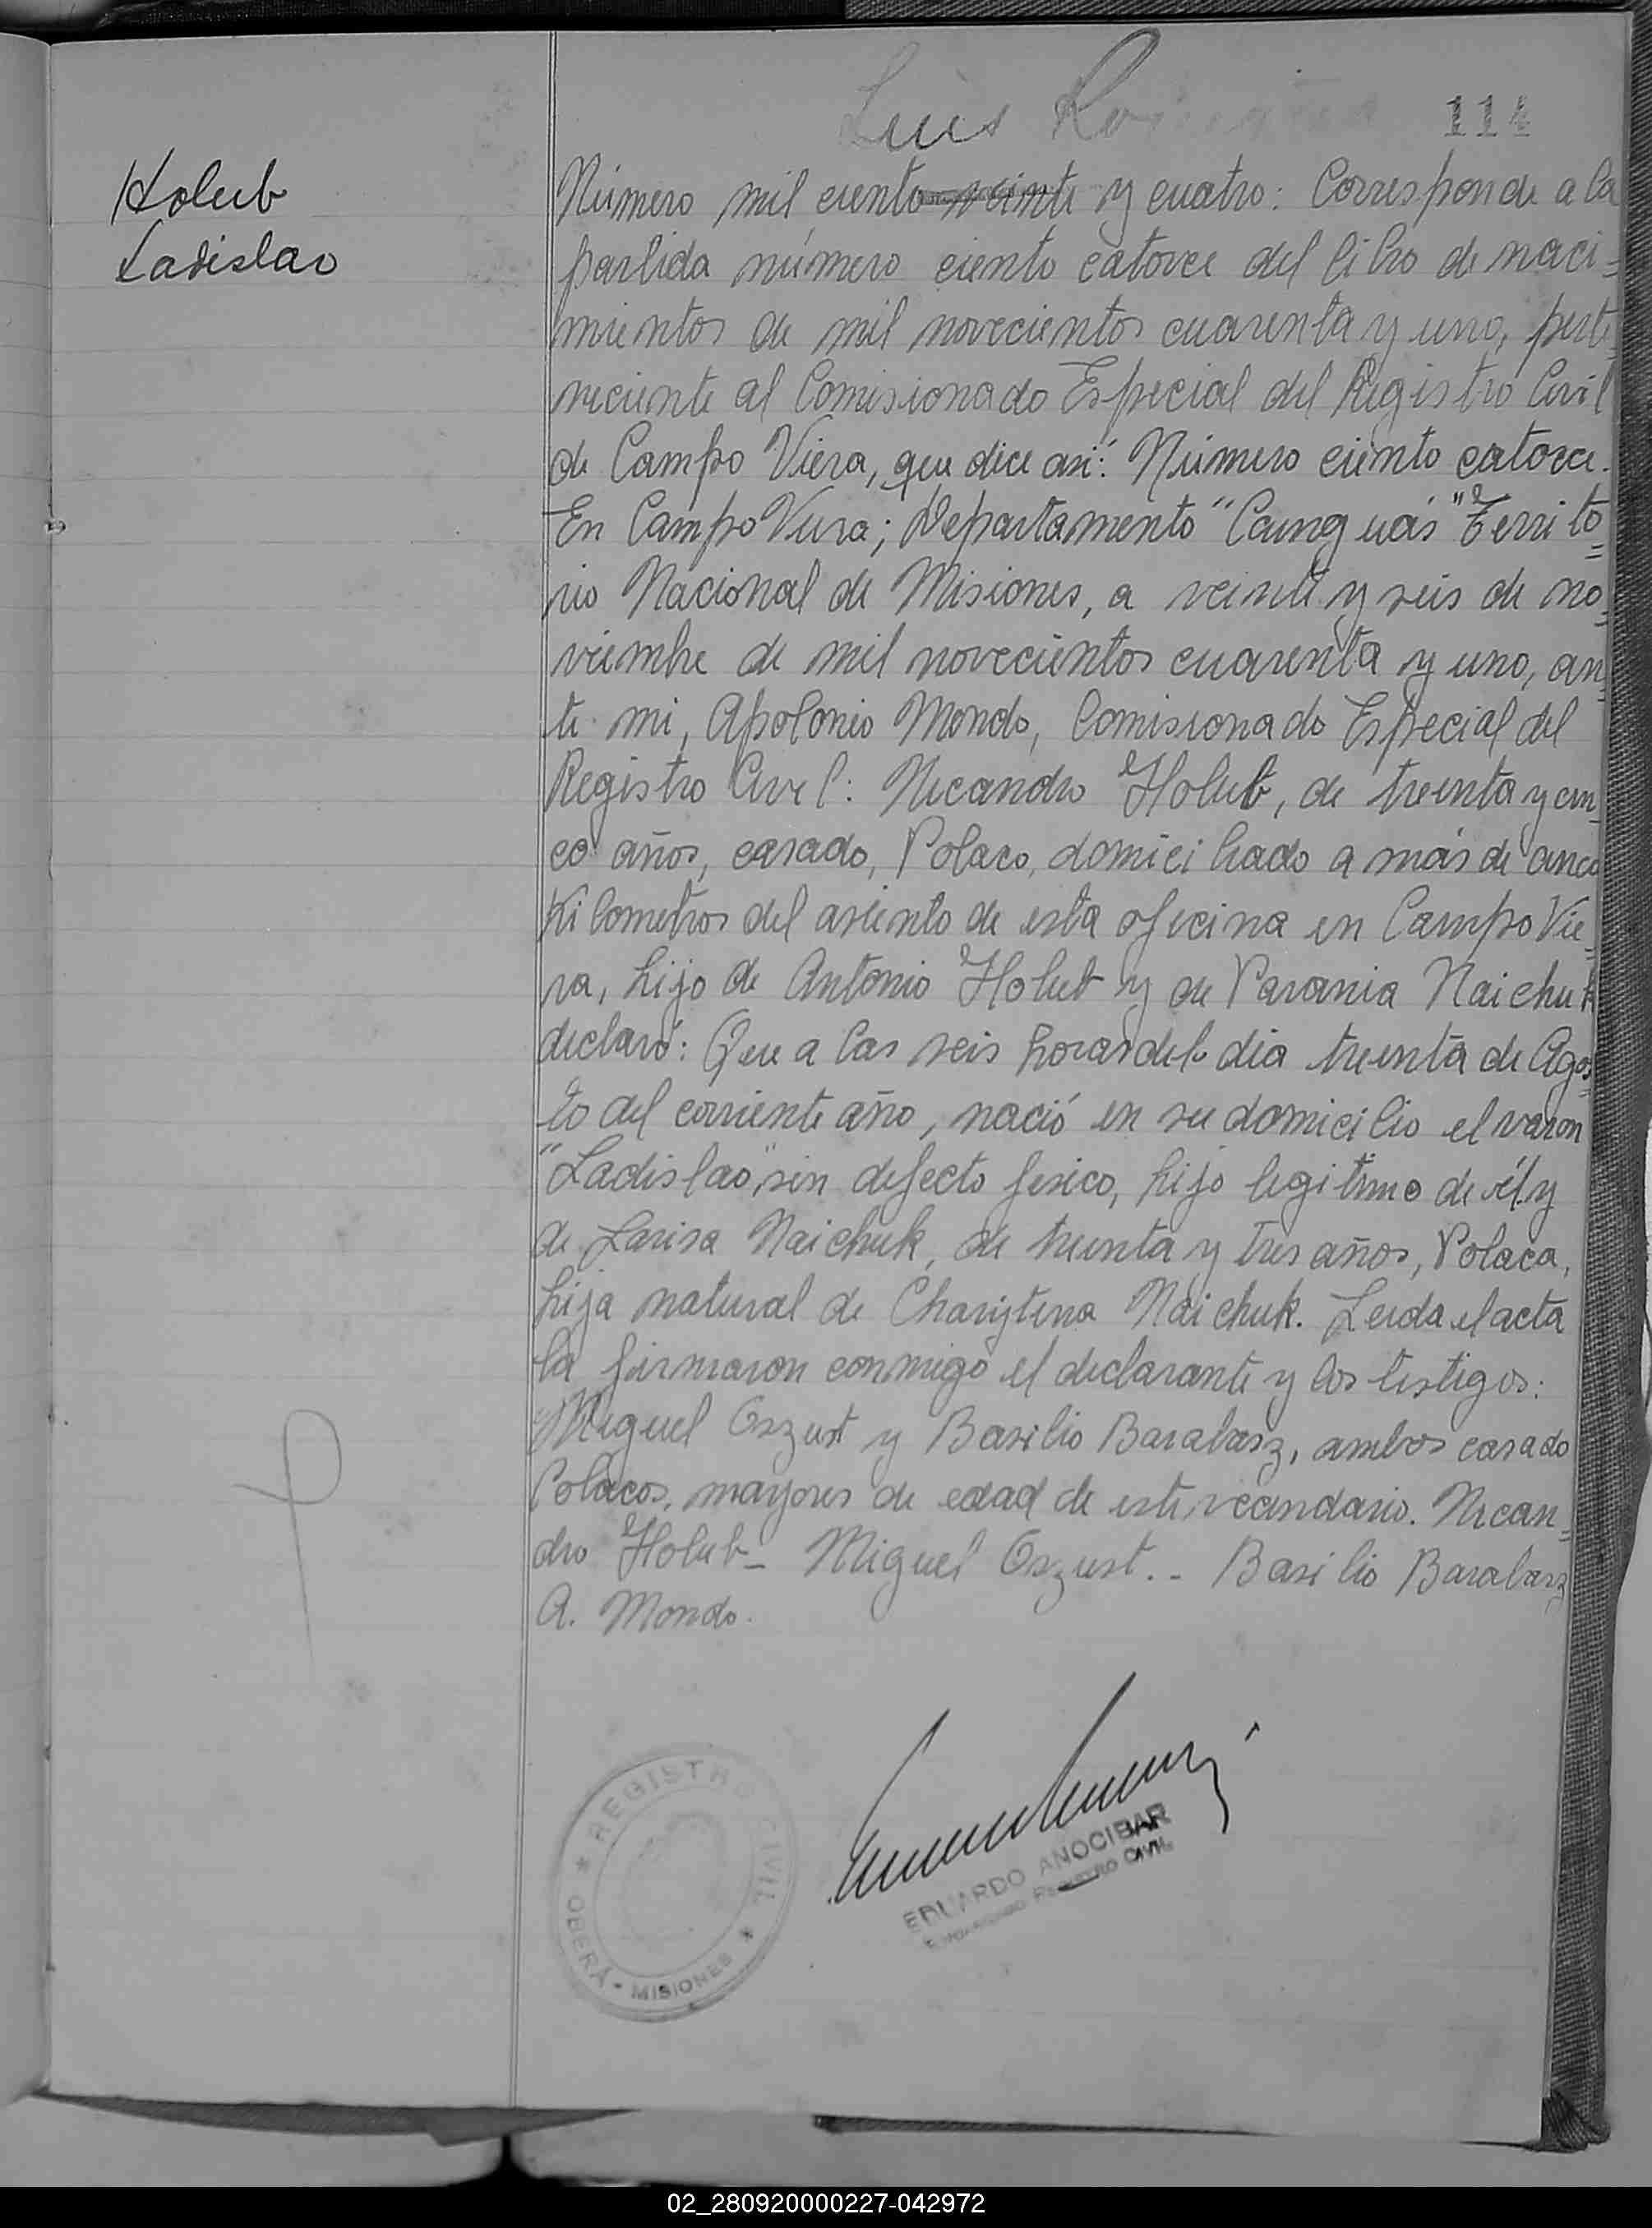 Luis
114
Holub
Ladislao
Número mil ciento veinte y cuatro: Corresponde a la
partida número ciento catorce del libro de naci=
mientos de mil novecientos cuarenta y uno, perte
neciente al Comisionado Especial del Registro Civil
de Campo Viera, que dice así: Número ciento catorce.
En Campo Viera; Departamento "Cainguás" Territo=
rio Nacional de Misiones, a veinte y seis de no=
viembre de mil novecientos cuarenta y uno, an=
te mi, Apolonio Mondo, Comisionado Especial del
Registro Civil: Nicandro Holub, de treinta y cin=
co años, casado, Polaco, domiciliado a más de cinco
Kilometros del asiento de esta oficina en Campo Vie=
ra, hijo de Antonio Holub y de Parania Naichuk
declaró: Que a las seis horas del dia treinta de Agos=
to del corriente año, nació en su domicilio el varon
"Ladislao", sin defecto fisico, hijo legitimo de él y
de Larisa Naichuk, de treinta y tres años, Polaca,
hija natural de Charijtina Naichuk. Leida el acta
la firmaron conmigo el declarante y los testigos:
Miguel Oszust y Basilio Barabasz, ambos casado
Polacos, mayores de edad de este vecindario. Nican=
dro Holub - Miguel Oszust.- Basilio Barabasz
A. Mondo.
* REGISTRO CIVIL *
OBERÁ - MISIONES
EDUARDO ANOCIBAR
ENCARGADO REGISTRO CIVIL
02_280920000227-042972